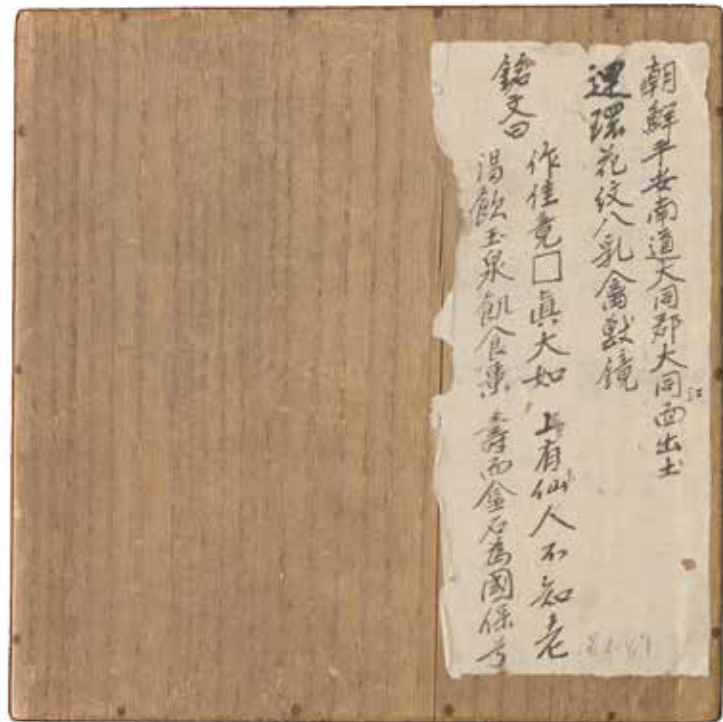 朝鮮平安南道大同郡大同江面出土
連環花紋八乳禽獣鏡
銘文曰
作佳竟□真大如 上有仙人不知老
渇飲玉泉飢食棗 壽而金石為國保兮